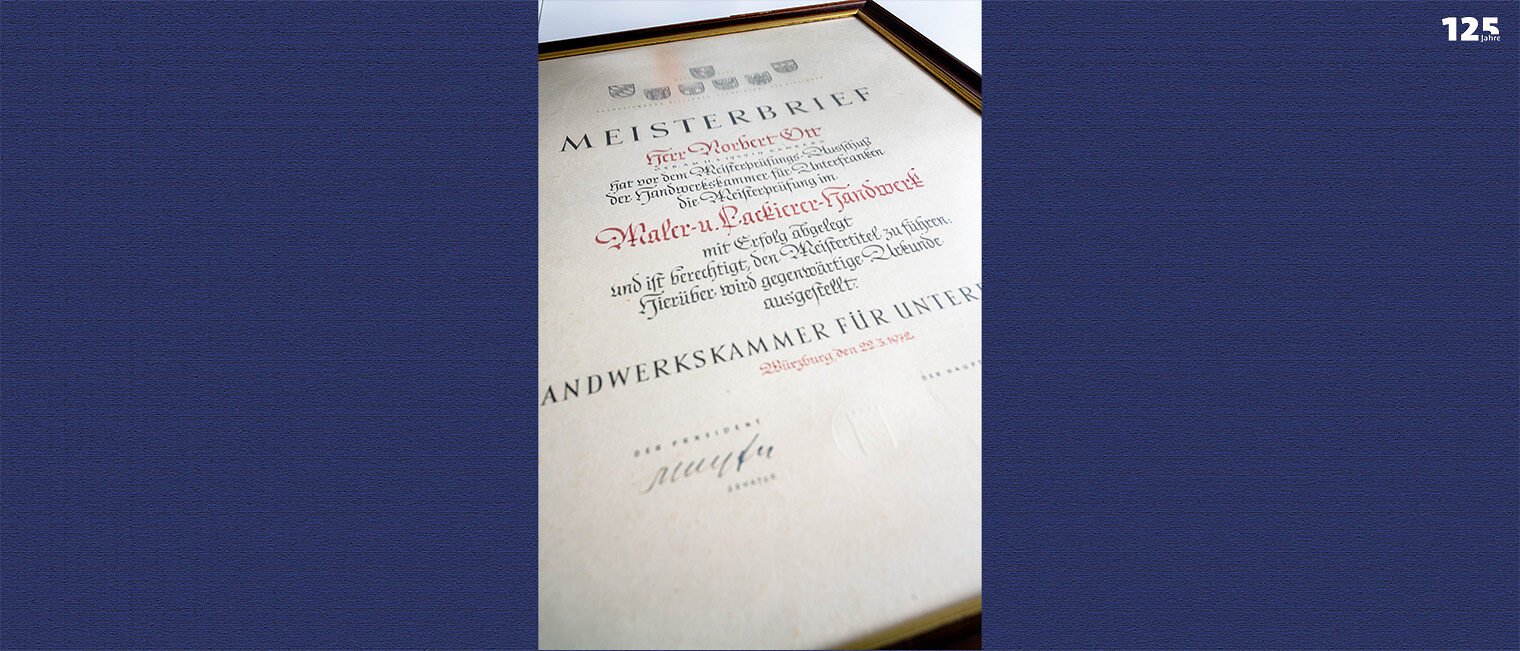 125
Jahre
MEISTERBRIEF
Herr Norbert Ott
hat vor dem Meisterprüfungs-Ausschuß
der Handwerkskammer für Unterfranken
die Meisterprüfung im
Maler-u. Lackierer-Handwerk
mit Erfolg abgelegt
und ist berechtigt, den Meistertitel zu führen.
Hierüber wird gegenwärtige Urkunde
ausgestellt.
ANDWERKSKAMMER FÜR UNTER
Würzburg, den 22.3.1972
DER PRÄSIDENT
DER HAUP